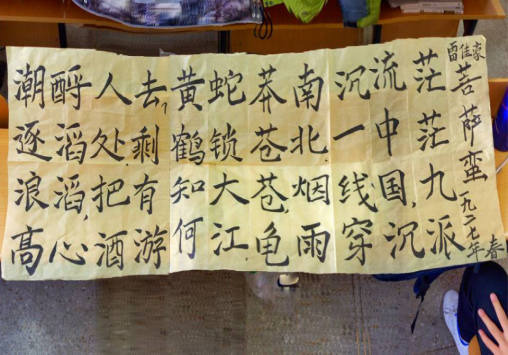 雷佳豪
菩萨蛮 一九二七年春
茫茫九派
流中国,沉
沉一线穿
南北烟雨
莽苍苍,龟
蛇锁大江
黄鹤知何
去?剩有游
人处.把酒
酹滔滔,心
潮逐浪高